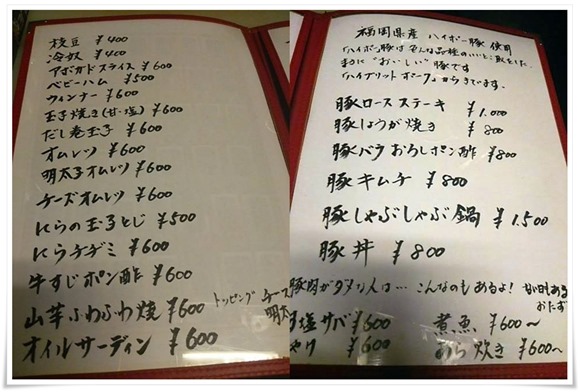 枝豆 ¥400
冷奴 ¥400
アボガドスライス ¥600
ベビーハム ¥500
ウィンナー ¥600
玉子焼き(甘・塩) ¥600
だし巻玉子 ¥600
オムレツ ¥600
明太子オムレツ ¥600
チーズオムレツ ¥600
にらの玉子とじ ¥500
にらチヂミ ¥600
牛すじポン酢 ¥600
山芋ふわふわ焼 ¥600 トッピング チーズ
明太
オイルサーディン ¥600
福岡県産 ハイポー豚 使用
「ハイポー豚は色んな品種のいいとこ取をした
まさに"おいしい"豚です
「ハイブリットポーク」からきてます。
豚ロースステーキ ¥1,000
豚しょうが焼き ¥800
豚バラおろしポン酢 ¥800
豚キムチ ¥800
豚しゃぶしゃぶ鍋 ¥1,500
豚丼 ¥800
豚肉がダメな人は… こんなのもあるよ!
おたず
塩サバ ¥600 煮魚 ¥600〜
¥600 あら炊き ¥600〜